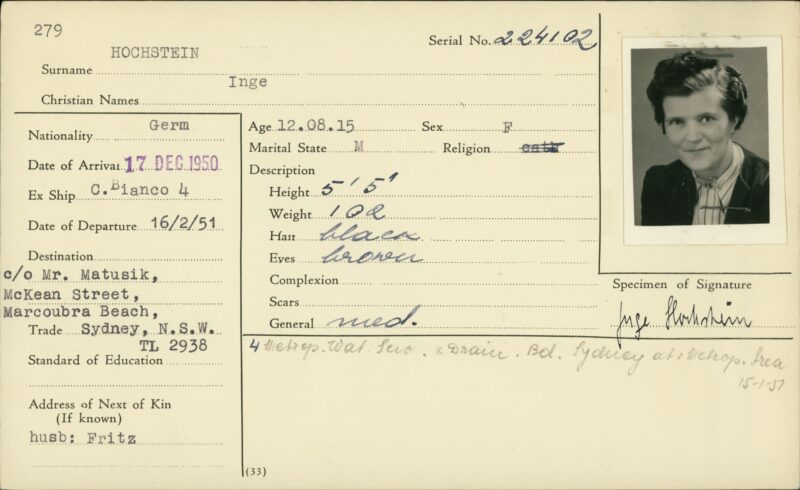 279
HOCHSTEIN
Serial No. 224102
Surname
Inge
Christian Names
Nationality Germ
Date of Arrival 17 DEC 1950
Ex Ship C.Bianco 4
Date of Departure 16/2/51
Destination
c/o Mr. Matusik,
McKean Street,
Marcoubra Beach,
Trade Sydney, N.S.W.
TL 2938
Standard of Education
Address of Next of Kin
(If known)
husb: Fritz
Age 12.08.15 Sex F
Marital State M Religion cath
Description
Height 5'5"
Weight 102
Hair black
Eyes brown
Complexion
Scars
General med.
Specimen of Signature
Inge Hochstein
4 Metrop. Wat. Sew. & Drain. Bd. Sydney at: Metrop. Area
15-1-51
(33)